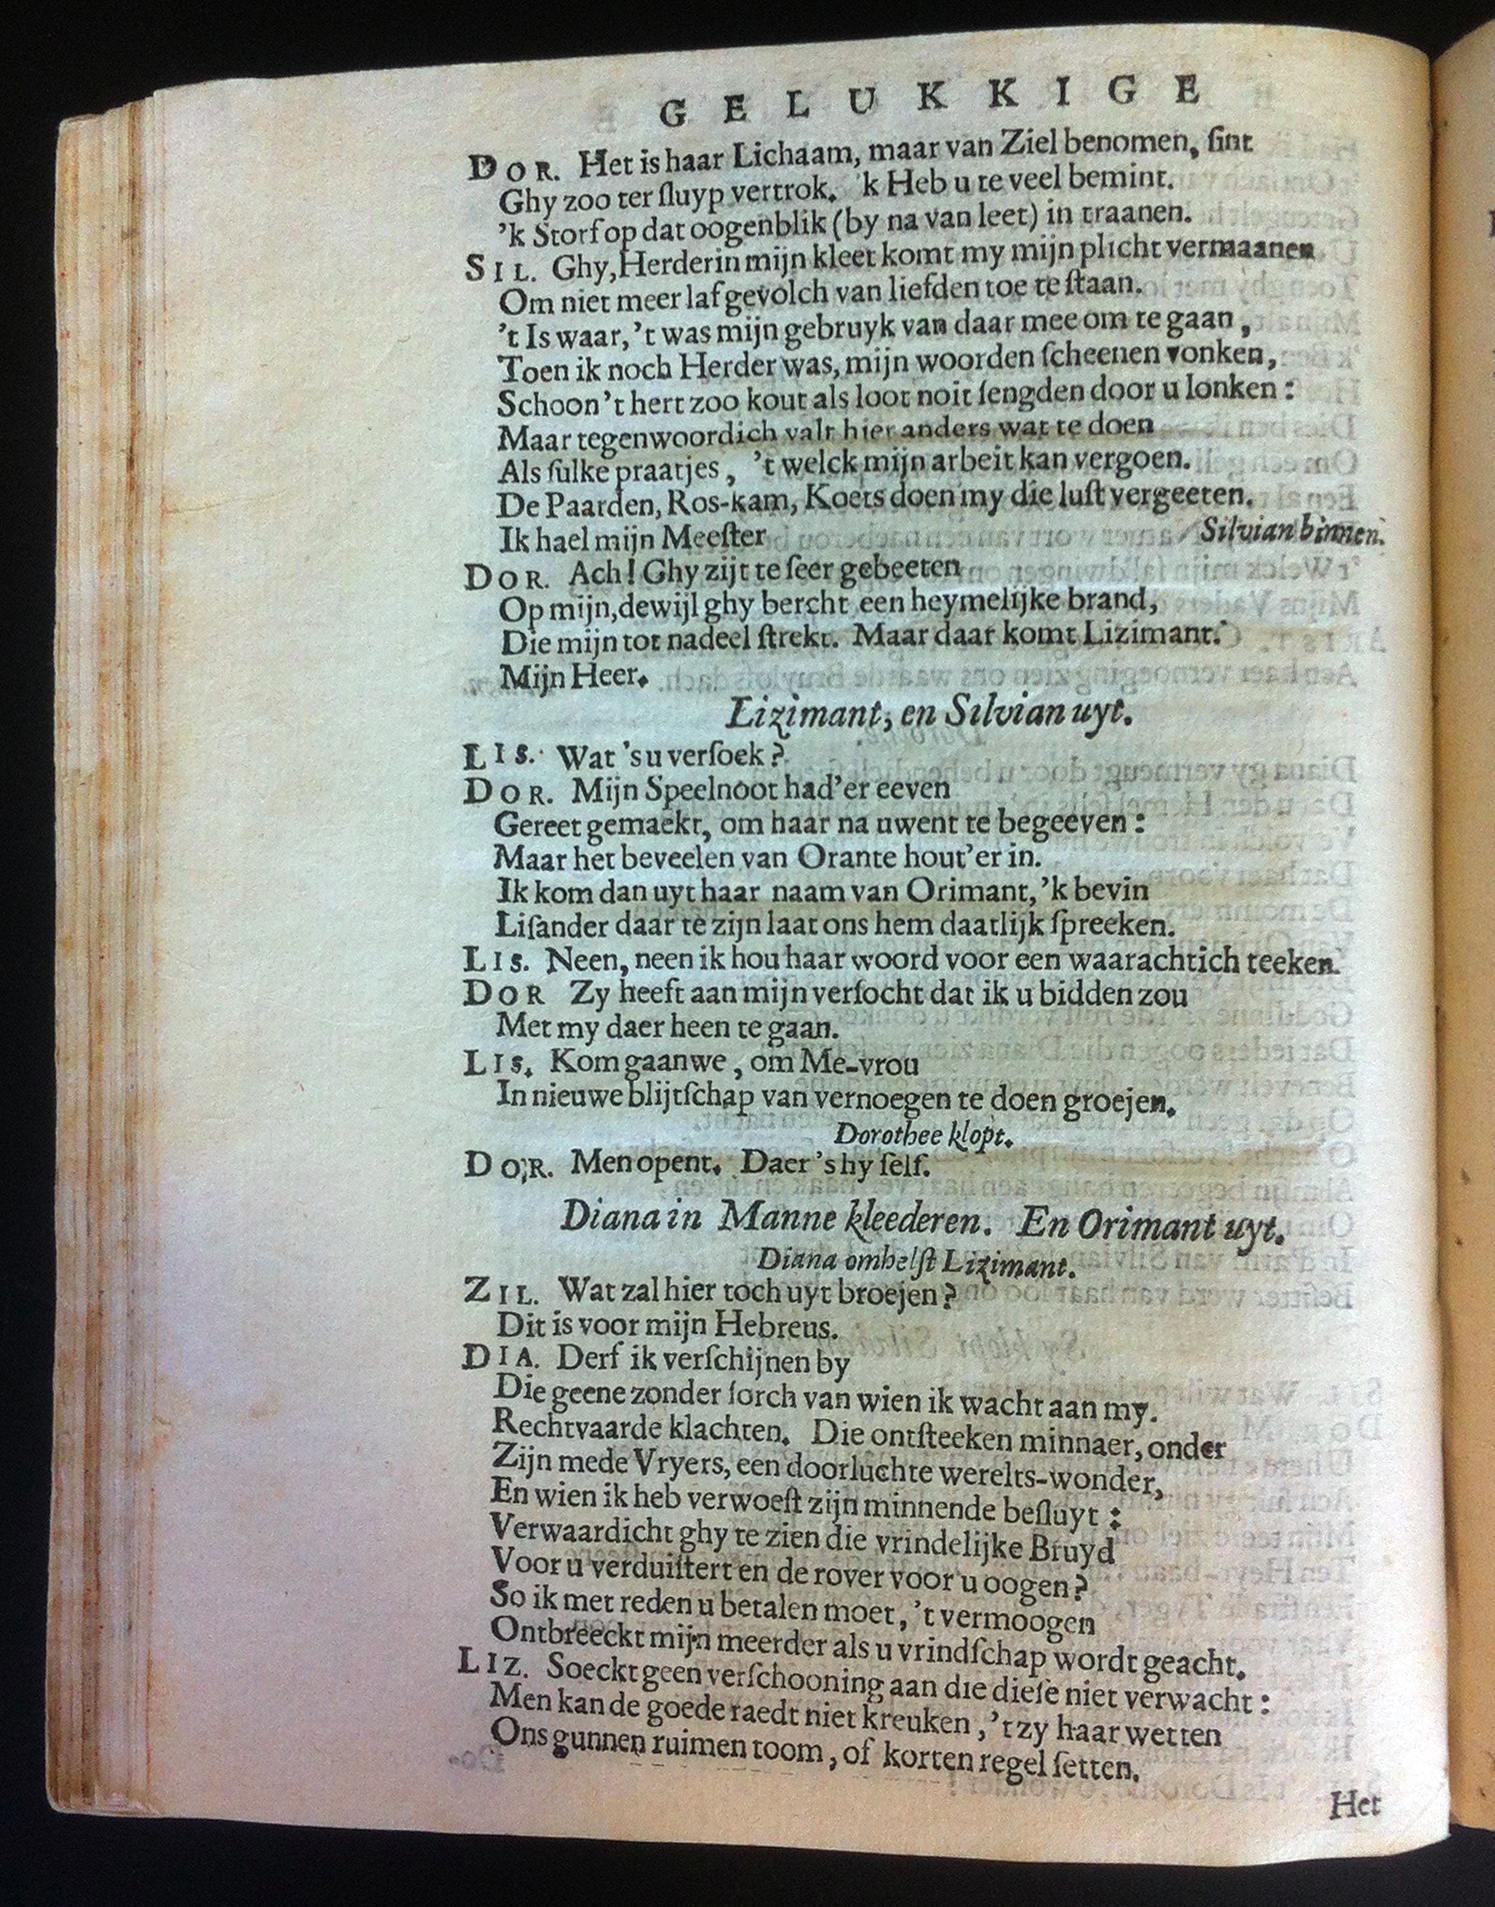 GELUKKIGE
DOR. Het is haar Lichaam, maar van Ziel benomen, sint
Ghy zoo ter sluyp vertrok. 'k Heb u te veel bemint.
'k Storf op dat oogenblik (by na van leet) in traanen.
SIL. Ghy, Herderin mijn kleet komt my mijn plicht vermaanen
Om niet meer laf gevolch van liefden toe te staan.
't Is waar, 't was mijn gebruyk van daar mee om te gaan,
Toen ik noch Herder was, mijn woorden scheenen vonken,
Schoon 't hert zoo kout als loot noit sengden door u lonken:
Maar tegenwoordich valt hier anders wat te doen
Als sulke praatjes, 't welck mijn arbeit kan vergoen.
De Paarden, Ros-kam, Koets doen my die lust vergeeten.
Ik hael mijn Meester Silvian binnen.
DOR. Ach! Ghy zijt te seer gebeeten
Op mijn, dewijl ghy bercht een heymelijke brand,
Die mijn tot nadeel strekt. Maar daar komt Lizimant.
Mijn Heer.
Lizimant, en Silvian uyt.
LIS. Wat 's u versoek?
DOR. Mijn Speelnoot had'er eeven
Gereet gemaekt, om haar na uwent te begeeven:
Maar het beveelen van Orante hout'er in.
Ik kom dan uyt haar naam van Orimant, 'k bevin
Lisander daar te zijn laat ons hem daatlijk spreeken.
LIS. Neen, neen ik hou haar woord voor een waarachtich teeken.
DOR Zy heeft aan mijn versocht dat ik u bidden zou
Met my daer heen te gaan.
LIS. Kom gaanwe, om Me-vrou
In nieuwe blijtschap van vernoegen te doen groejen.
Dorothee klopt.
DO;R. Men opent. Daer 's hy self.
Diana in Manne kleederen. En Orimant uyt.
Diana omhelst Lizimant.
ZIL. Wat zal hier toch uyt broejen?
Dit is voor mijn Hebreus.
DIA. Derf ik verschijnen by
Die geene zonder sorch van wien ik wacht aan my.
Rechtvaarde klachten. Die ontsteeken minnaer, onder
Zijn mede Vryers, een doorluchte werelts-wonder,
En wien ik heb verwoest zijn minnende besluyt:
Verwaardicht ghy te zien die vrindelijke Bruyd
Voor u verduistert en de rover voor u oogen?
So ik met reden u betalen moet, 't vermoogen
Ontbreeckt mijn meerder als u vrindschap wordt geacht.
LIZ. Soeckt geen verschooning aan die diese niet verwacht:
Men kan de goede raedt niet kreuken, 't zy haar wetten
Ons gunnen ruimen toom, of korten regel setten.
Het